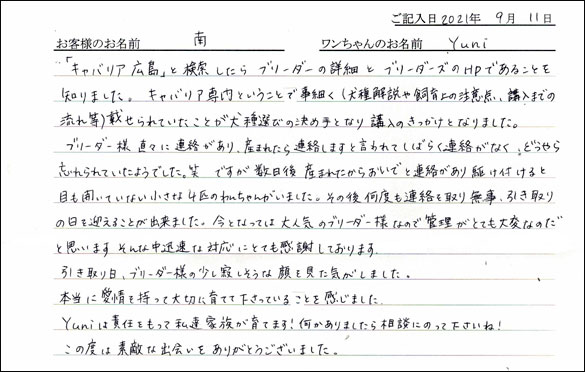 ご記入日 2021年 9月 11日
お客様のお名前 南 ワンちゃんのお名前 Yuni
「キャバリア 広島」と検索したら ブリーダーの詳細と ブリーダーズのHPであることを
知りました。 キャバリア専門ということで事細く(犬種解説や飼育上の注意点、購入までの
流れ等)載せられていたことが犬種選びの決め手となり 購入のきっかけとなりました。
ブリーダー様 直々に連絡があり、産まれたら連絡しますと言われてしばらく連絡がなく、どうやら
忘れられていたようでした。笑 ですが数日後 産まれたからおいでと連絡があり 駆け付けると
目も開いていない小さな4匹のわんちゃんがいました。その後何度も連絡を取り 無事、引き取り
の日を迎えることが出来ました。今となっては大人気のブリーダー様なので管理がとても大変なのだ
と思います そんな中迅速な対応にとても感謝しております。
引き取り日、ブリーダー様の少し寂しそうな顔を見た気がしました。
本当に愛情を持って大切に育てて下さっていることを感じました。
Yuniは責任をもって私達家族が育てます!何かありましたら相談にのって下さいね!
この度は素敵な出会いをありがとうございました。